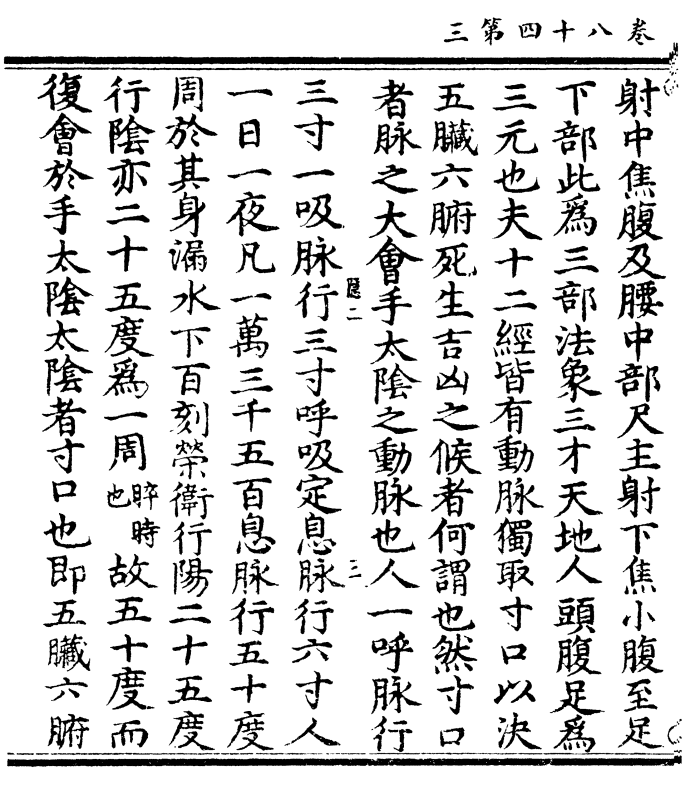 卷八十四第三
射中焦腹及腰中部尺主射下焦小腹至足
下部此爲三部法象三才天地人頭腹足爲
三元也夫十二經皆有動脉獨取寸口以決
五臓六腑死生吉凶之候者何謂也然寸口
者脉之大會手太陰之動脉也人一呼脉行
三寸一吸脉行三寸呼吸定息脉行六寸人
一日一夜凡一萬三千五百息脉行五十度
周於其身漏水下百刻榮衛行陽二十五度
行陰亦二十五度爲一周晬時也故五十度而
復會於手太陰太陰者寸口也即五臓六腑